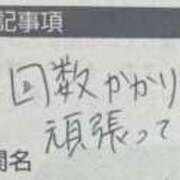 記事項
回数かかり
頑張って
関名